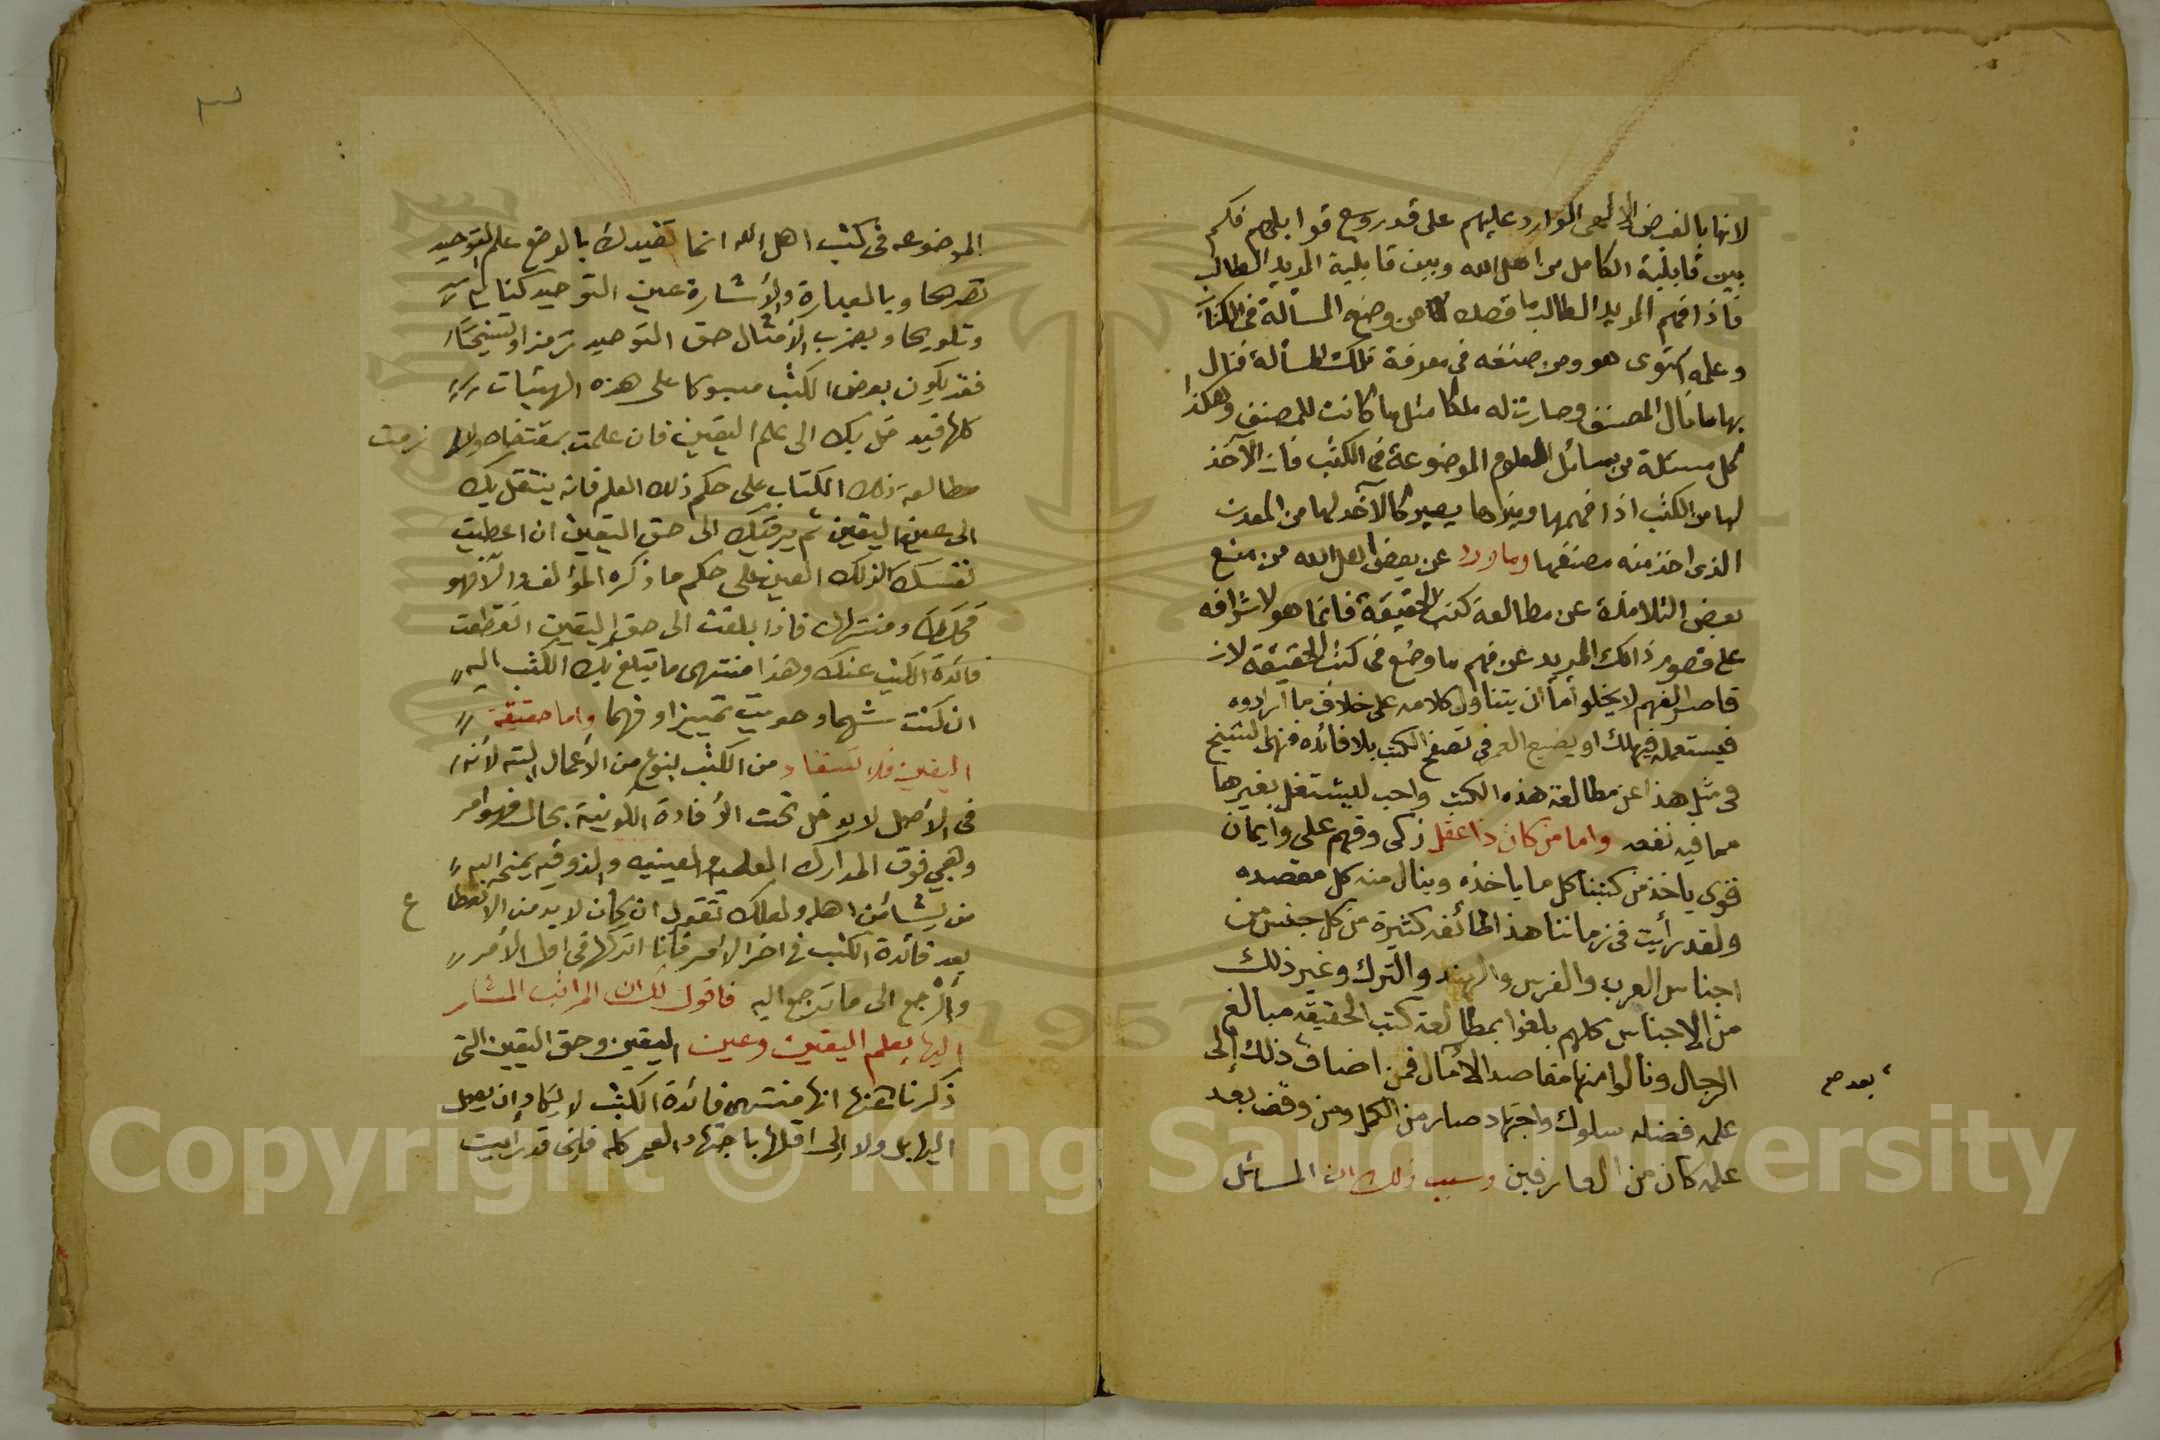 لانها بالفيض الالهى الوارد عليهم على قدر وسع قوابلهم فكم
بين قابلية الكامل من اهل الله وبين قابلية المريد الطالب
فاذا فهم المريد الطالب ما قصد من وضع المسألة فى الكتاب
وعلمه استوى هو ومن صنفه فى معرفة تلك المسألة فنال
بها ما نال المصنف وصارت له ملكا مثل ما كانت للمصنف وهكذا
كل مسئلة من مسائل العلوم الموضوعة فى الكتب فان الآخذ
لها من الكتب اذا فهمها وميزها يصير كالآخذ لها من المعدن
الذى اخذ منه مصنفها وما ورد عن بعض اهل الله من منع
بعض التلامذة عن مطالعة كتب الحقيقة فانما هو لاشرافه
على قصور ذالك المريد عن فهم ما وضع فى كتب الحقيقة لان
قاصر الفهم لا يخلو اما ان يتناول كلامه على خلاف ما ارادوه
فيستعمله فيهلك او يضيع العمر فى تصفح الكتب بلا فائده فنهى الشيخ
فى مثل هذا عن مطالعة هذه الكتب واجب ليشتغل بغيرها
مما فيه نفعه واما من كان ذا عقل زكى وفهم على وايمان
قوى ياخذ من كتبنا كل ما ياخذه وينال منه كل مقصده
ولقد رأيت فى زماننا هذا طائفه كثيرة من كل جنس من
اجناس العرب والفرس والهند والترك وغير ذلك
من الاجناس كلهم بلغوا بمطالعة كتب الحقيقه مبالغ
الرجال ونالوا منها مقاصد الآمال فمن اضاف ذلك إلى
بعد صح
علمه فضله سلوك واجتهاد صار من الكمل ومن وقف بعد
علمه كان من العارفين وسبب ذلك ان المسائل
الموضوعه فى كتب اهل الله انما تفيدك بالوضع علم التوحيد
تصريحا وبالعبارة والأشارة عين التوحيد كناية
وتلويحا وبضرب الأمثال حق التوحيد رمزا
فقد يكون بعض الكتب مسبوكا على هذه الهيئات
كلها فيدخل بك الى علم اليقين فان علمت بمقتضاه ولازمت
مطالعة ذلك الكتاب على حكم ذلك العلم فانه ينتقل بك
الى عين اليقين ثم يرقيك الى حق اليقين ان اعطيت
نفسك لذلك العين على حكم ما ذكره المؤلف والآ فهو
محلك ومنتهاك فاذا بلغت الى حق اليقين انقطعت
فائدة الكتب عنك وهذا منتهى ما تبلغ بك الكتب اليه
ان كنت شهما وحويت تمييزا وفهما واما حقيقة
اليقين فلا تستفاد من الكتب بنوع من الأعمال البته لأنه
فى الاصل لا يدخل تحت الأفادة الكونية بحال فهو امر
وهبى فوق المدارك العلميه والعينيه والذوقيه يمنحه الله
من يشا من اهله ولعلك تقول ان كان لا بد من الانقطاع
بعد فائدة الكتب فى اخر الامر فأنا اتركها فى اول الأمر
وأرجع الى ما ترجع اليه فاقول لك ان المراتب المشار
اليها بعلم اليقين وعين اليقين وحق اليقين التى
ذكرنا عنها انها منتهى فائدة الكتب لا يكاد ان يصل
اليها بل ولا إلى اقلها باجتهاد العمر كله فإنى قد رأيت